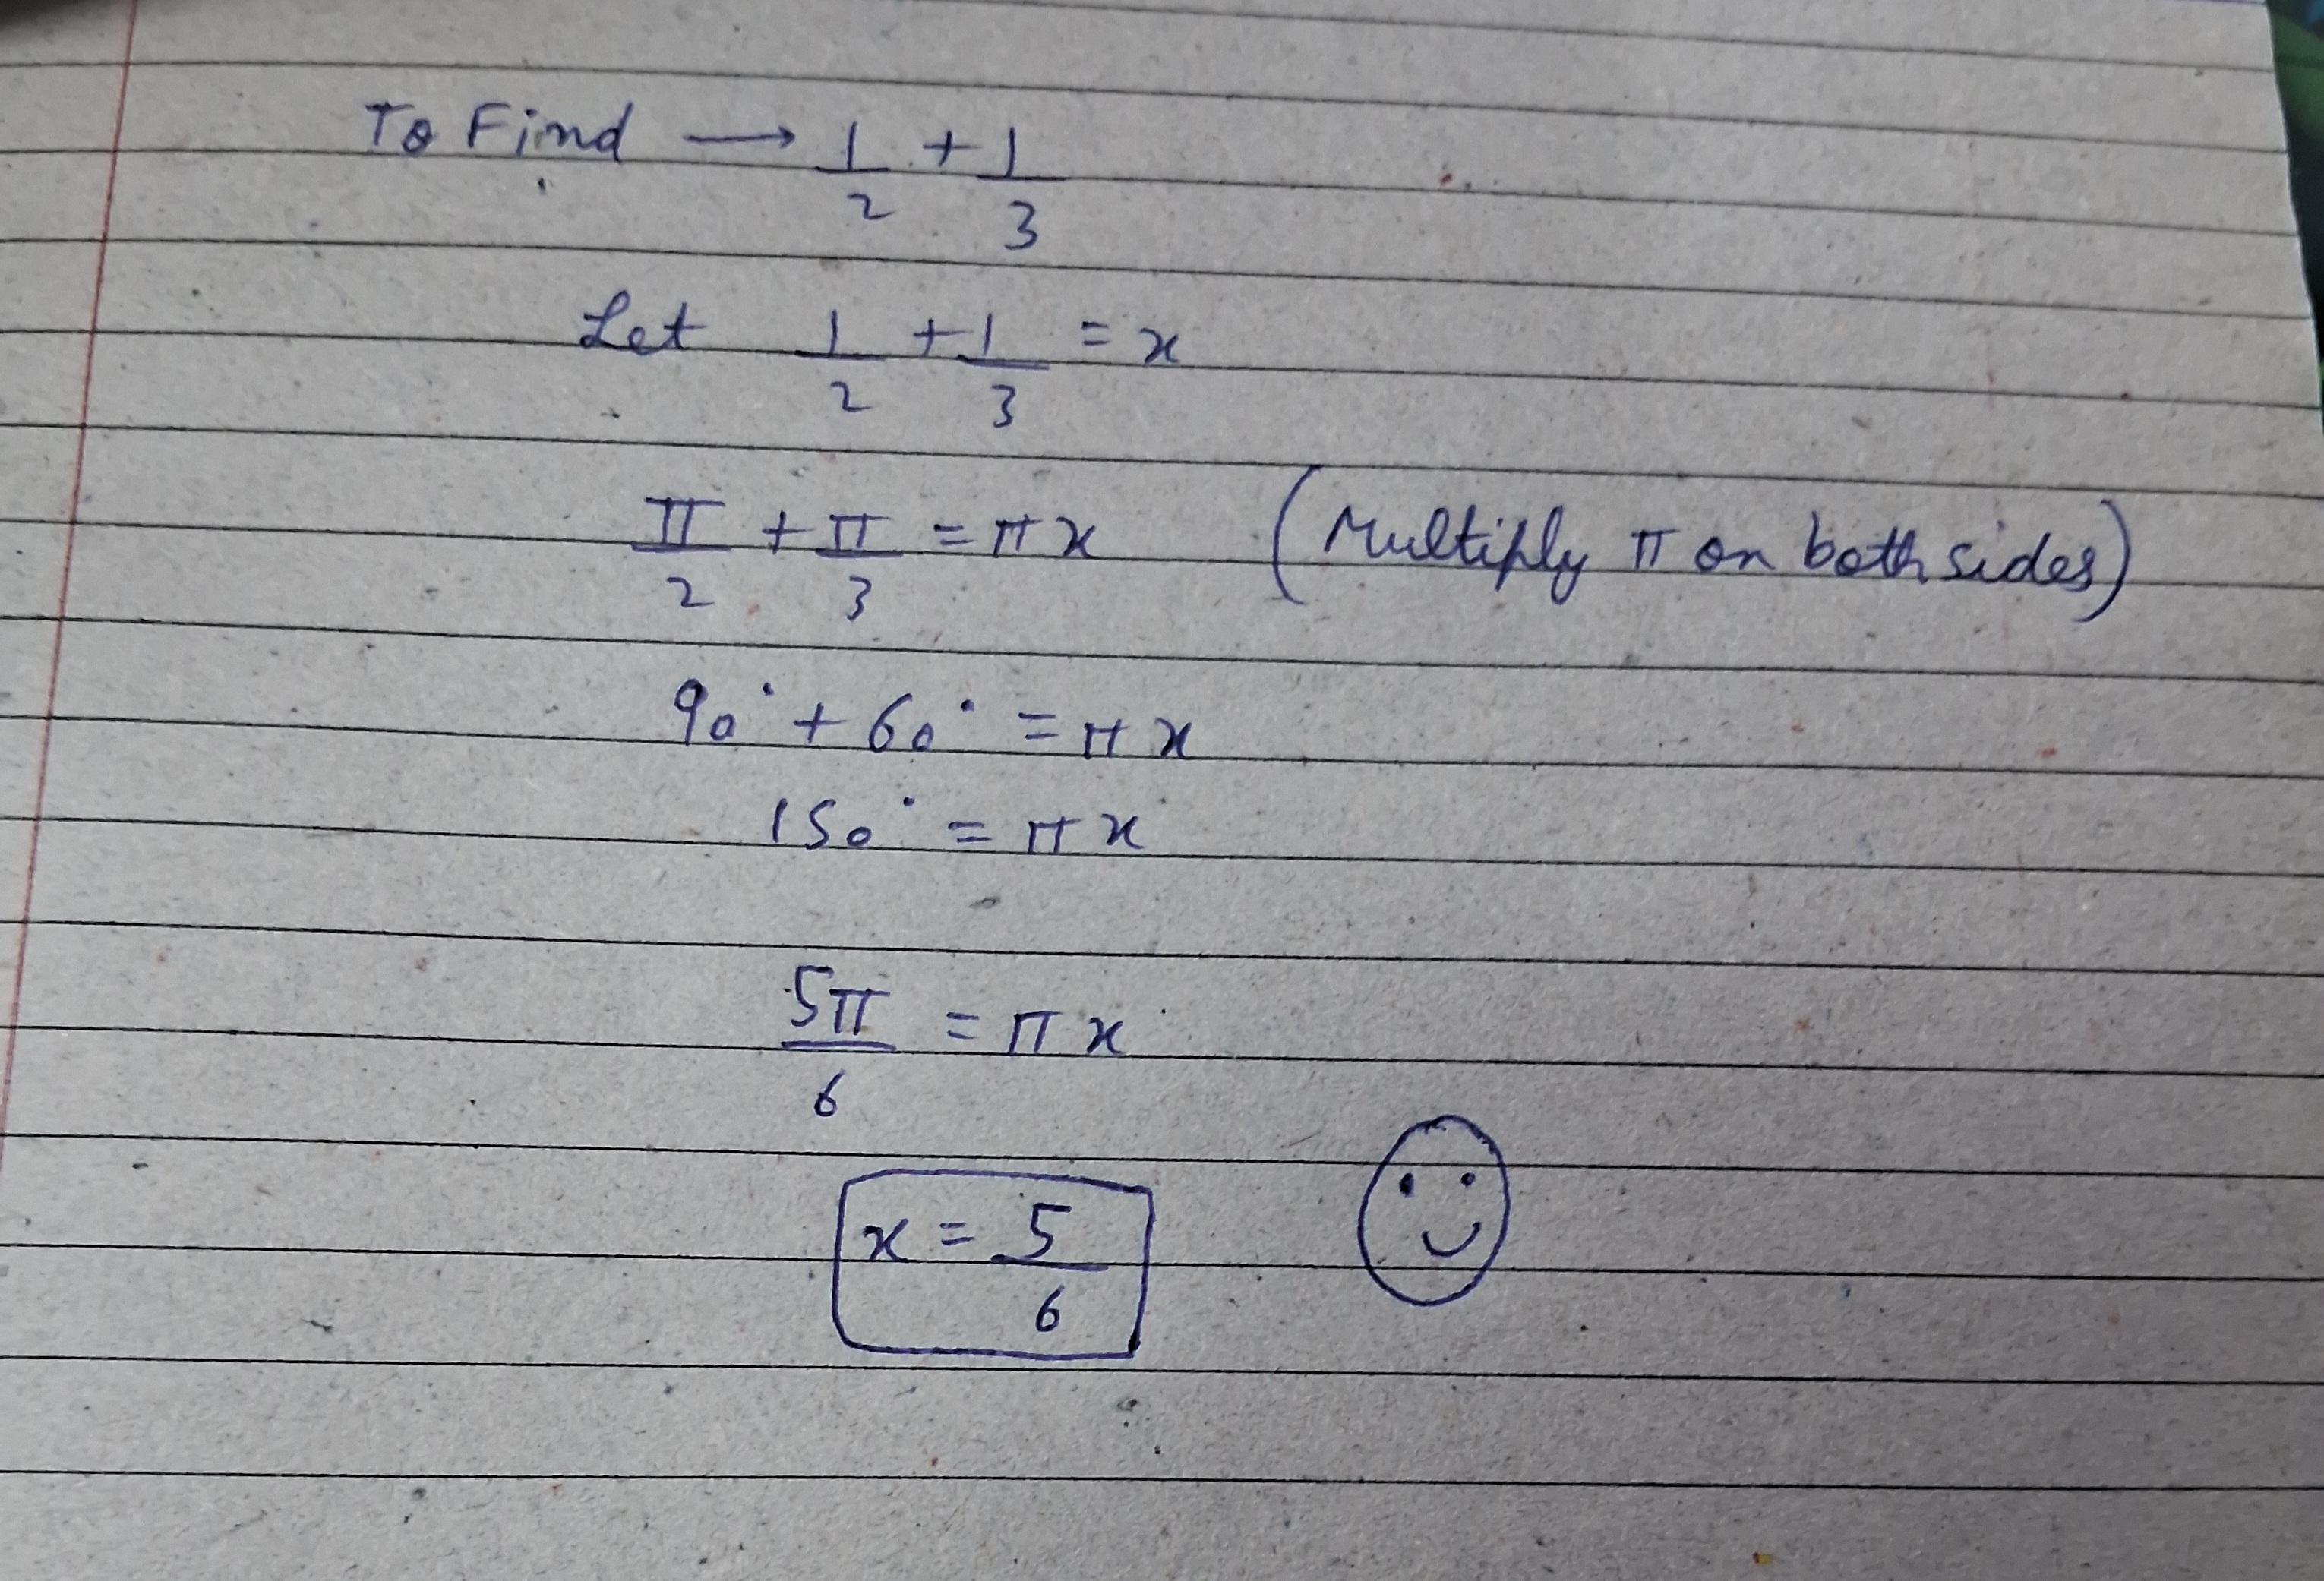 To Find → 1/2 + 1/3
Let 1/2 + 1/3 = x
π/2 + π/3 = πx (Multiply π on both sides)
90° + 60° = πx
150° = πx
5π/6 = πx
x = 5/6